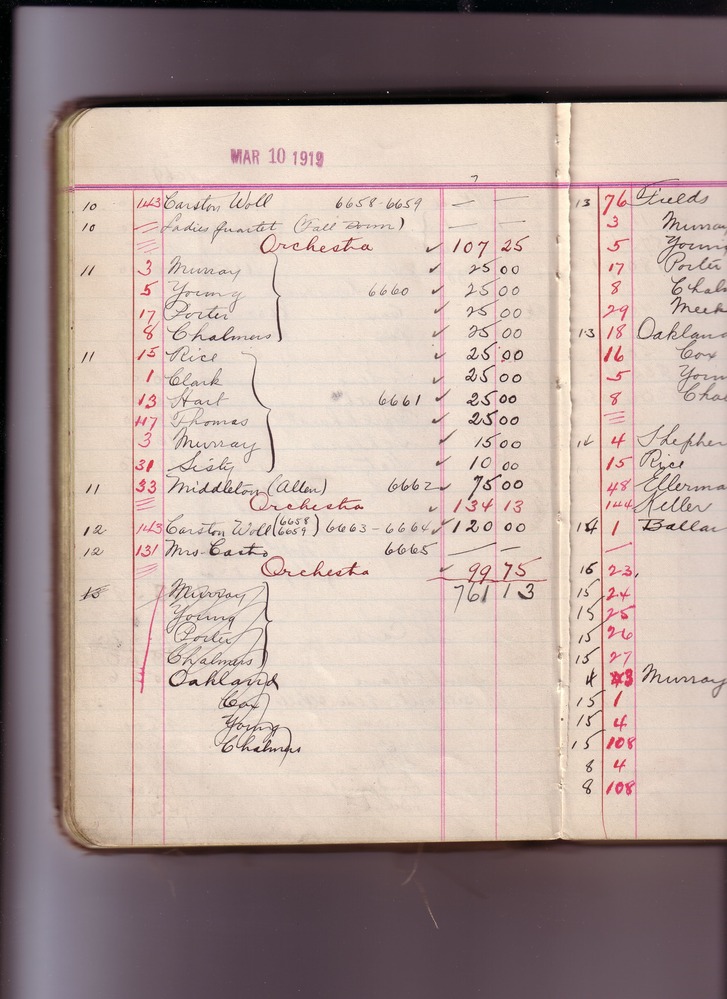 MAR 10 1919
10 143 Carston Woll 6658-6659 — —
10 Ladies Quartet (Fall Down) — —
Orchestra ✓ 107 25
11 3 Murray ✓ 25 00
5 Young 6660 ✓ 25 00
17 Porter ✓ 25 00
8 Chalmers ✓ 25 00
11 15 Rice ✓ 25 00
1 Clark ✓ 25 00
13 Hart 6661 ✓ 25 00
47 Thomas ✓ 25 00
3 Murray ✓ 15 00
31 Sisty ✓ 10 00
11 33 Middleton (Allen) 6662 ✓ 75 00
Orchestra ✓ 134 13
12 143 Carston Woll (6658 6659) 6663-6664 ✓ 120 00
12 131 Mrs. Castro 6665 — —
Orchestra ✓ 99 75
13 Murray 761 13
Young
Porter
Chalmers
Oakland
Cox
Young
Chalmers
13 76 Fields
3 Murray
5 Young
17 Porter
8 Chal
29 Meek
13 18 Oakland
16 Cox
5 Youn
8 Chal
14 4 Shepher
15 Rice
48 Ellerma
144 Keller
14 1 Ballar
16 23
15 24
15 25
15 26
15 27
4 3 Murray
15 1
15 4
15 108
8 4
8 108